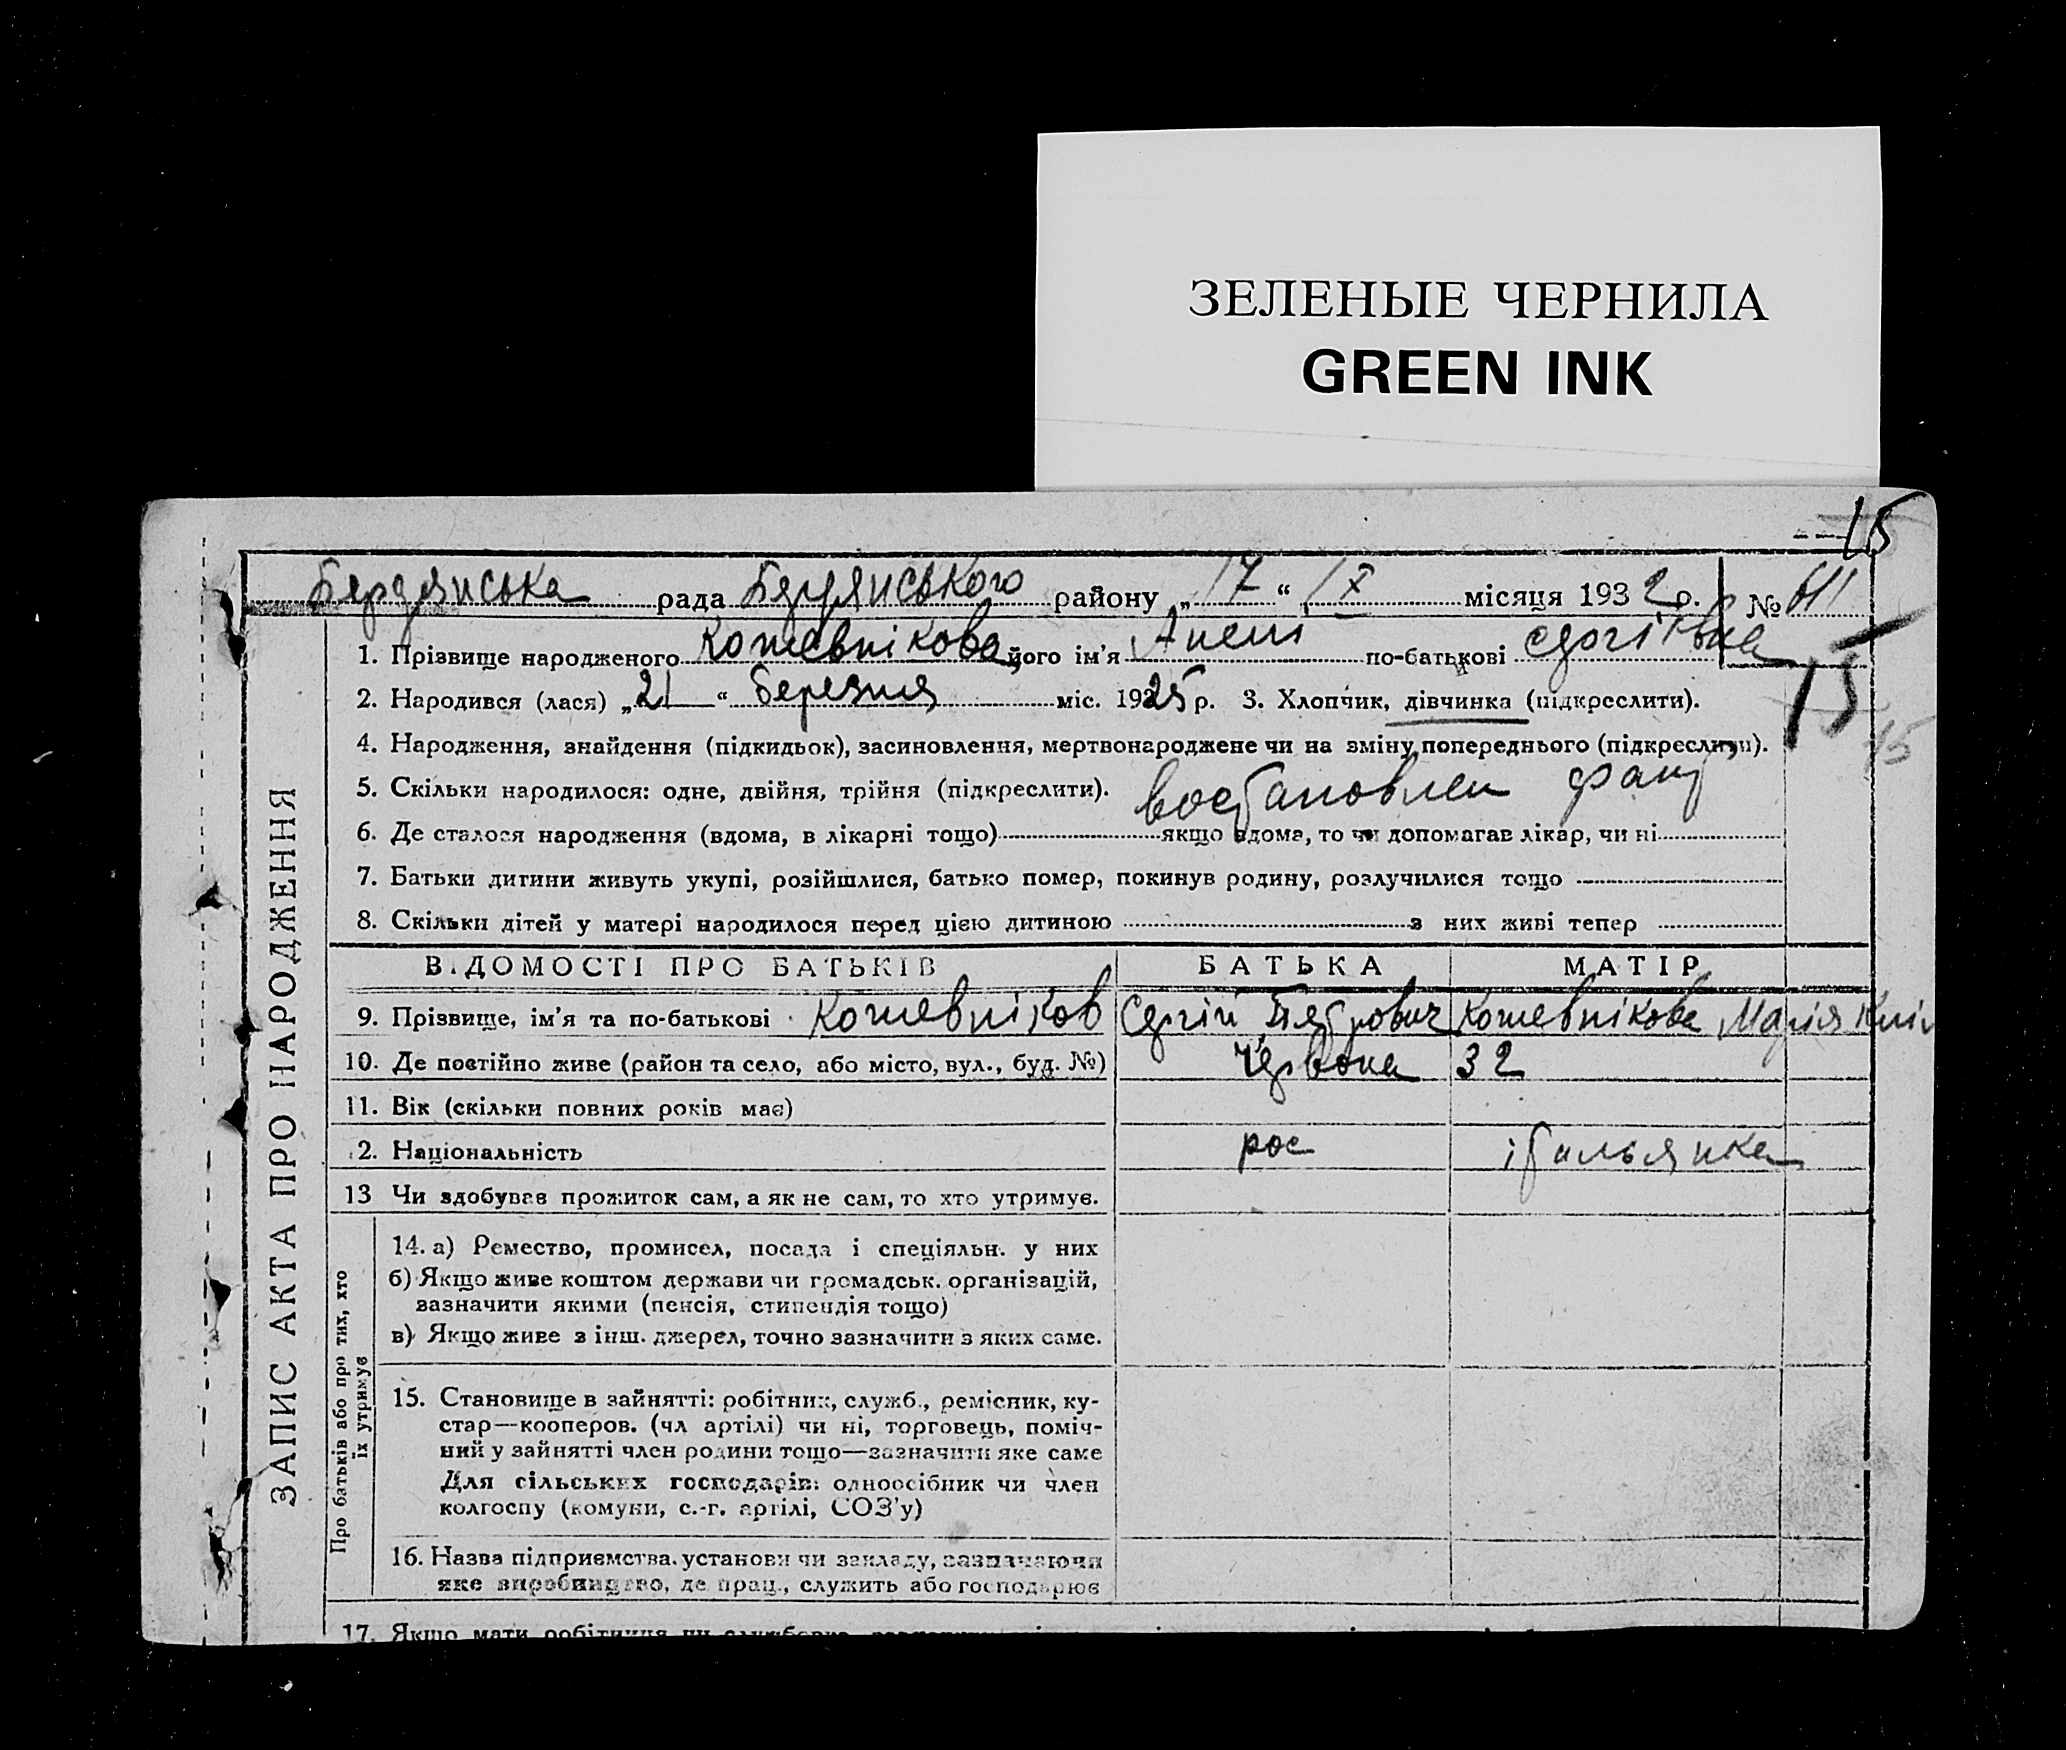 ЗЕЛЕНЫЕ ЧЕРНИЛА
GREEN INK
15
Бердянська рада Бердянського району „17“ IX місяця 1932 р. №
1. Прізвище народженого Кожевнікова його ім'я по-батькові
15
2. Народився (лася) „21“ березня міс. 1925 р. 3. Хлопчик, дівчинка (підкреслити).
4. Народження, знайдення (підкидьок), засиновлення, мертвонароджене чи на зміну попереднього (підкреслити).
15
5. Скільки народилося: одне, двійня, трійня (підкреслити). востановлен факт
6. Де сталося народження (вдома, в лікарні тощо) якщо вдома, то чи допомагав лікар, чи ні
7. Батьки дитини живуть укупі, розійшлися, батько помер, покинув родину, розлучилися тощо
8. Скільки дітей у матері народилося перед цією дитиною з них живі тепер
ВІДОМОСТІ ПРО БАТЬКІВ БАТЬКА МАТІР
9. Прізвище, ім'я та по-батькові Кожевніков Сергій Петрович Кожевнікова Марія
10. Де постійно живе (район та село, або місто, вул., буд. №) Червона 32
11. Вік (скільки повних років має)
12. Національність рос італьянка
13 Чи здобував прожиток сам, а як не сам, то хто утримує.
14. а) Ремество, промисел, посада і спеціяльн. у них
б) Якщо живе коштом держави чи громадськ. організацій,
зазначити якими (пенсія, стипендія тощо)
в) Якщо живе з інш. джерел, точно зазначити з яких саме.
15. Становище в зайнятті: робітник, служб., ремісник, ку-
стар—кооперов. (чл артілі) чи ні, торговець, поміч-
ний у зайнятті член родини тощо—зазначити яке саме
Для сільських господарів: одноосібник чи член
колгоспу (комуни, с.-г. артілі, СОЗ'у)
16. Назва підприємства, установи чи закладу, зазначаючи
яке виробництво, де прац., служить або господарює
17. Якщо мати робітниця чи службовка
ЗАПИС АКТА ПРО НАРОДЖЕННЯ
Про батьків або про тих, хто
їх утримує